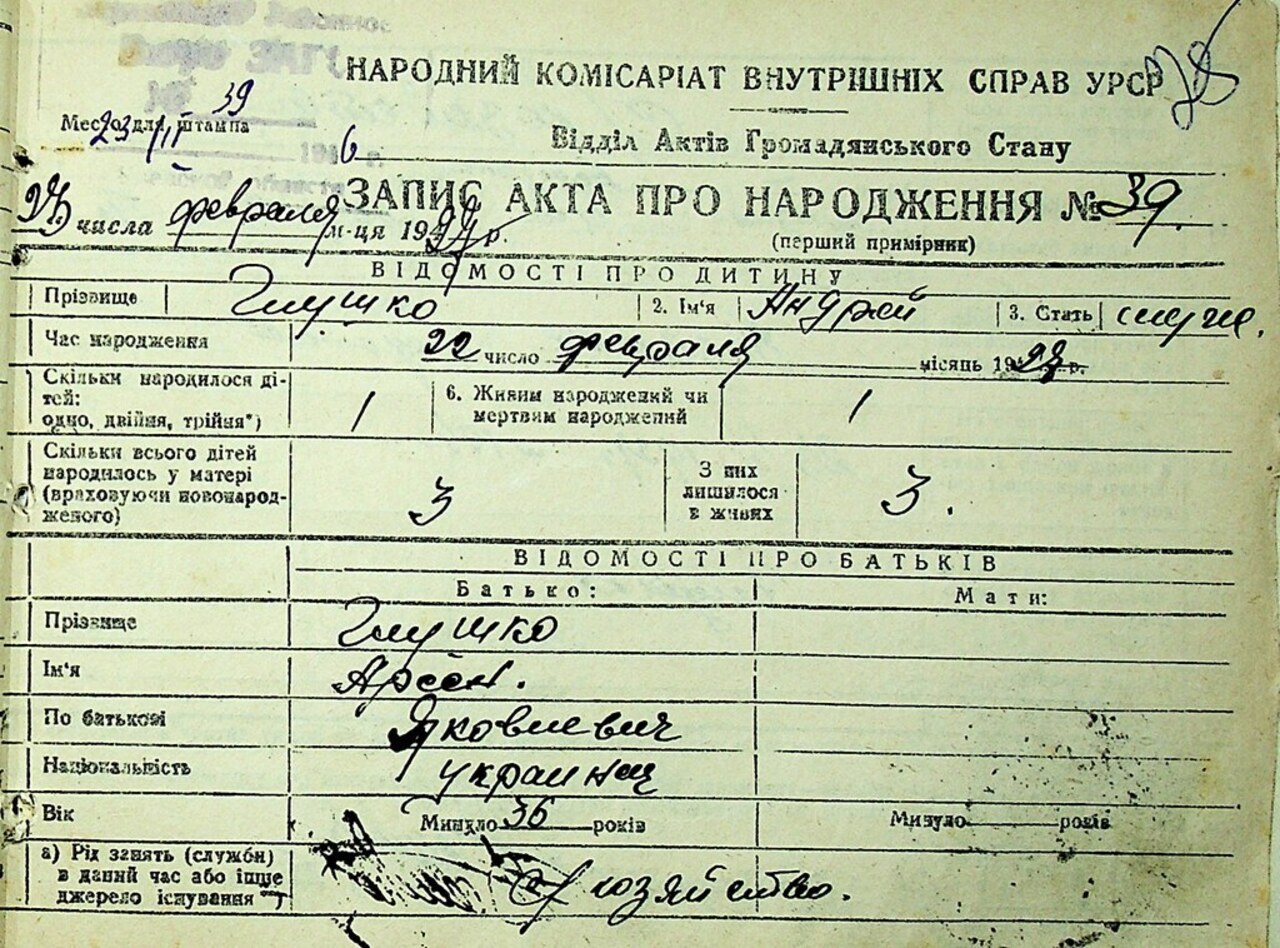 НАРОДНИЙ КОМІСАРІАТ ВНУТРІШНІХ СПРАВ УРСР
39
Место для штампа
23/II
6
Відділ Актів Громадянського Стану
ЗАПИС АКТА ПРО НАРОДЖЕННЯ № 39.
числа февраля м-ця 19 р.
(перший примірник)
ВІДОМОСТІ ПРО ДИТИНУ
Прізвище Глушко 2. Ім'я Андрей 3. Стать
Час народження 22 число февраля місяць 19 р.
Скільки народилося дітей: одно, двійня, трійня*) 1 6. Живим народжений чи мертвим народжений 1
Скільки всього дітей народилось у матері (враховуючи новонародженого) 3 З них лишилося в живих 3.
ВІДОМОСТІ ПРО БАТЬКІВ
Батько: Мати:
Прізвище Глушко
Ім'я Арсен.
По батькові Яковлевич
Національність украинец
Вік Минуло 36 років Минуло років
а) Рід занять (служби) в даний час або інше джерело існування хозяйство.